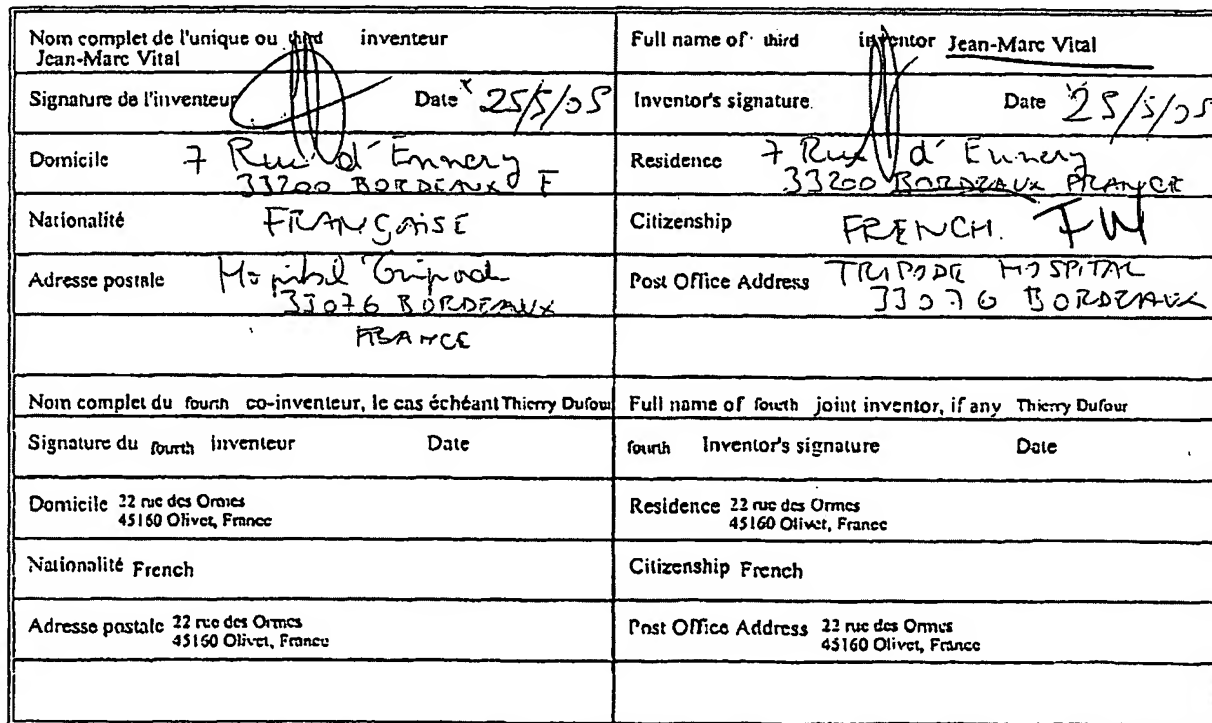 Nom complet de l'unique ou third inventeur
Jean-Marc Vital
Full name of third inventor Jean-Marc Vital
Signature de l'inventeur Date 25/5/05
Inventor's signature. Date 25/5/05
Domicile 7 Rue d'Ennery
33200 BORDEAUX F
Residence 7 Rue d'Ennery
33200 BORDEAUX FRANCE
Nationalité FRANÇAISE
Citizenship FRENCH.
Adresse postale Hôpital Tripode
33076 BORDEAUX
FRANCE
Post Office Address TRIPODE HOSPITAL
33076 BORDEAUX
Nom complet du fourth co-inventeur, le cas échéant Thierry Dufour
Full name of fourth joint inventor, if any Thierry Dufour
Signature du fourth inventeur Date
fourth Inventor's signature Date
Domicile 22 rue des Ormes
45160 Olivet, France
Residence 22 rue des Ormes
45160 Olivet, France
Nationalité French
Citizenship French
Adresse postale 22 rue des Ormes
45160 Olivet, France
Post Office Address 22 rue des Ormes
45160 Olivet, France